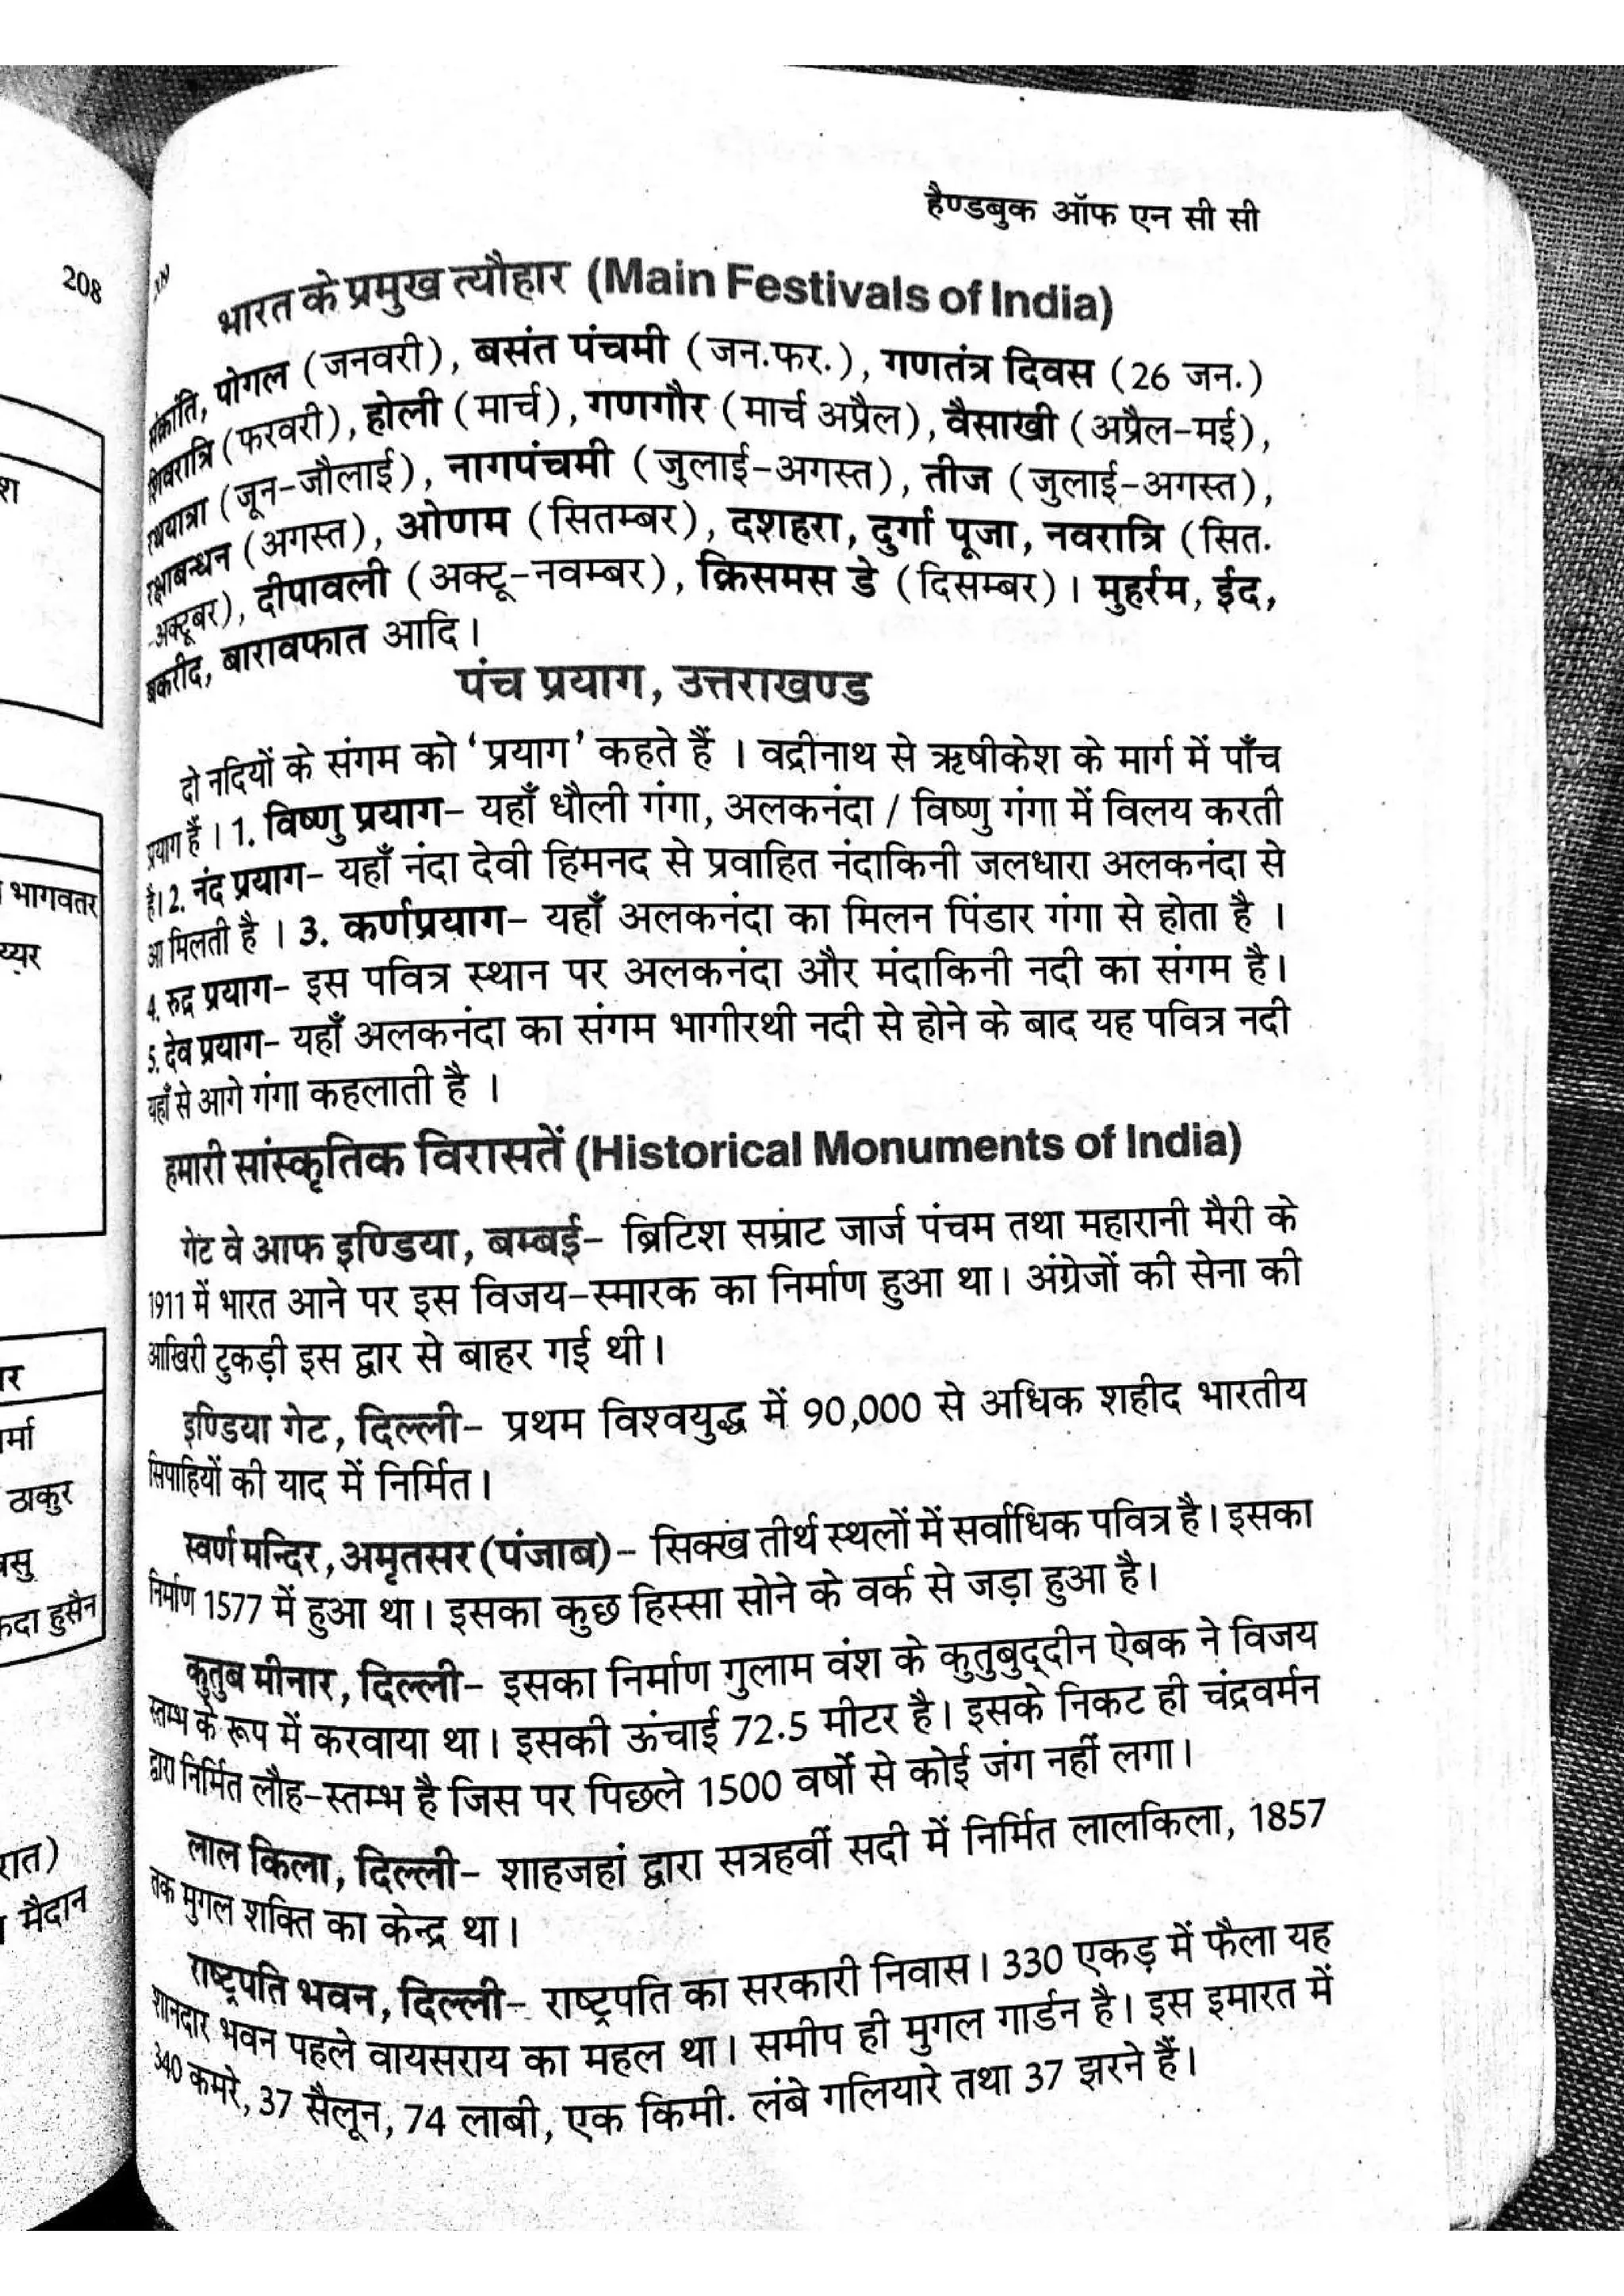 हैण्डबुक ऑफ एन सी सी
208
भारत के प्रमुख त्यौहार (Main Festivals of India)
संक्रांति, पोगल (जनवरी), बसंत पंचमी (जन.फर.), गणतंत्र दिवस (26 जन.)
शिवरात्रि (फरवरी), होली (मार्च), गणगौर (मार्च अप्रैल), वैसाखी (अप्रैल-मई),
रथयात्रा (जून-जौलाई), नागपंचमी (जुलाई-अगस्त), तीज (जुलाई-अगस्त),
रक्षाबन्धन (अगस्त), ओणम (सितम्बर), दशहरा, दुर्गा पूजा, नवरात्रि (सित.
-अक्टूबर), दीपावली (अक्टू-नवम्बर), क्रिसमस डे (दिसम्बर)। मुहर्रम, ईद,
बकरीद, बारावफात आदि।
पंच प्रयाग, उत्तराखण्ड
दो नदियों के संगम को ‘प्रयाग’ कहते हैं । वद्रीनाथ से ऋषीकेश के मार्ग में पाँच
प्रयाग हैं । 1. विष्णु प्रयाग- यहाँ धौली गंगा, अलकनंदा / विष्णु गंगा में विलय करती
है। 2. नंद प्रयाग- यहाँ नंदा देवी हिमनद से प्रवाहित नंदाकिनी जलधारा अलकनंदा से
आ मिलती है । 3. कर्णप्रयाग- यहाँ अलकनंदा का मिलन पिंडार गंगा से होता है ।
4. रुद्र प्रयाग- इस पवित्र स्थान पर अलकनंदा और मंदाकिनी नदी का संगम है।
5. देव प्रयाग- यहाँ अलकनंदा का संगम भागीरथी नदी से होने के बाद यह पवित्र नदी
यहाँ से आगे गंगा कहलाती है ।
हमारी सांस्कृतिक विरासतें (Historical Monuments of India)
गेट वे आफ इण्डिया, बम्बई- ब्रिटिश सम्राट जार्ज पंचम तथा महारानी मैरी के
1911 में भारत आने पर इस विजय-स्मारक का निर्माण हुआ था। अंग्रेजों की सेना की
आखिरी टुकड़ी इस द्वार से बाहर गई थी।
इण्डिया गेट, दिल्ली- प्रथम विश्वयुद्ध में 90,000 से अधिक शहीद भारतीय
सिपाहियों की याद में निर्मित।
स्वर्ण मन्दिर, अमृतसर (पंजाब)- सिक्ख तीर्थ स्थलों में सर्वाधिक पवित्र है। इसका
निर्माण 1577 में हुआ था। इसका कुछ हिस्सा सोने के वर्क से जड़ा हुआ है।
कुतुब मीनार, दिल्ली- इसका निर्माण गुलाम वंश के कुतुबुद्दीन ऐबक ने विजय
स्तम्भ के रूप में करवाया था। इसकी ऊंचाई 72.5 मीटर है। इसके निकट ही चंद्रवर्मन
द्वारा निर्मित लौह-स्तम्भ है जिस पर पिछले 1500 वर्षों से कोई जंग नहीं लगा।
लाल किला, दिल्ली- शाहजहां द्वारा सत्रहवीं सदी में निर्मित लालकिला, 1857
तक मुगल शक्ति का केन्द्र था।
राष्ट्रपति भवन, दिल्ली- राष्ट्रपति का सरकारी निवास। 330 एकड़ में फैला यह
शानदार भवन पहले वायसराय का महल था। समीप ही मुगल गार्डन है। इस इमारत में
340 कमरे, 37 सैलून, 74 लाबी, एक किमी. लंबे गलियारे तथा 37 झरने हैं।
भागवतर
य्यर
ठाकुर
हुसैन
मैदान